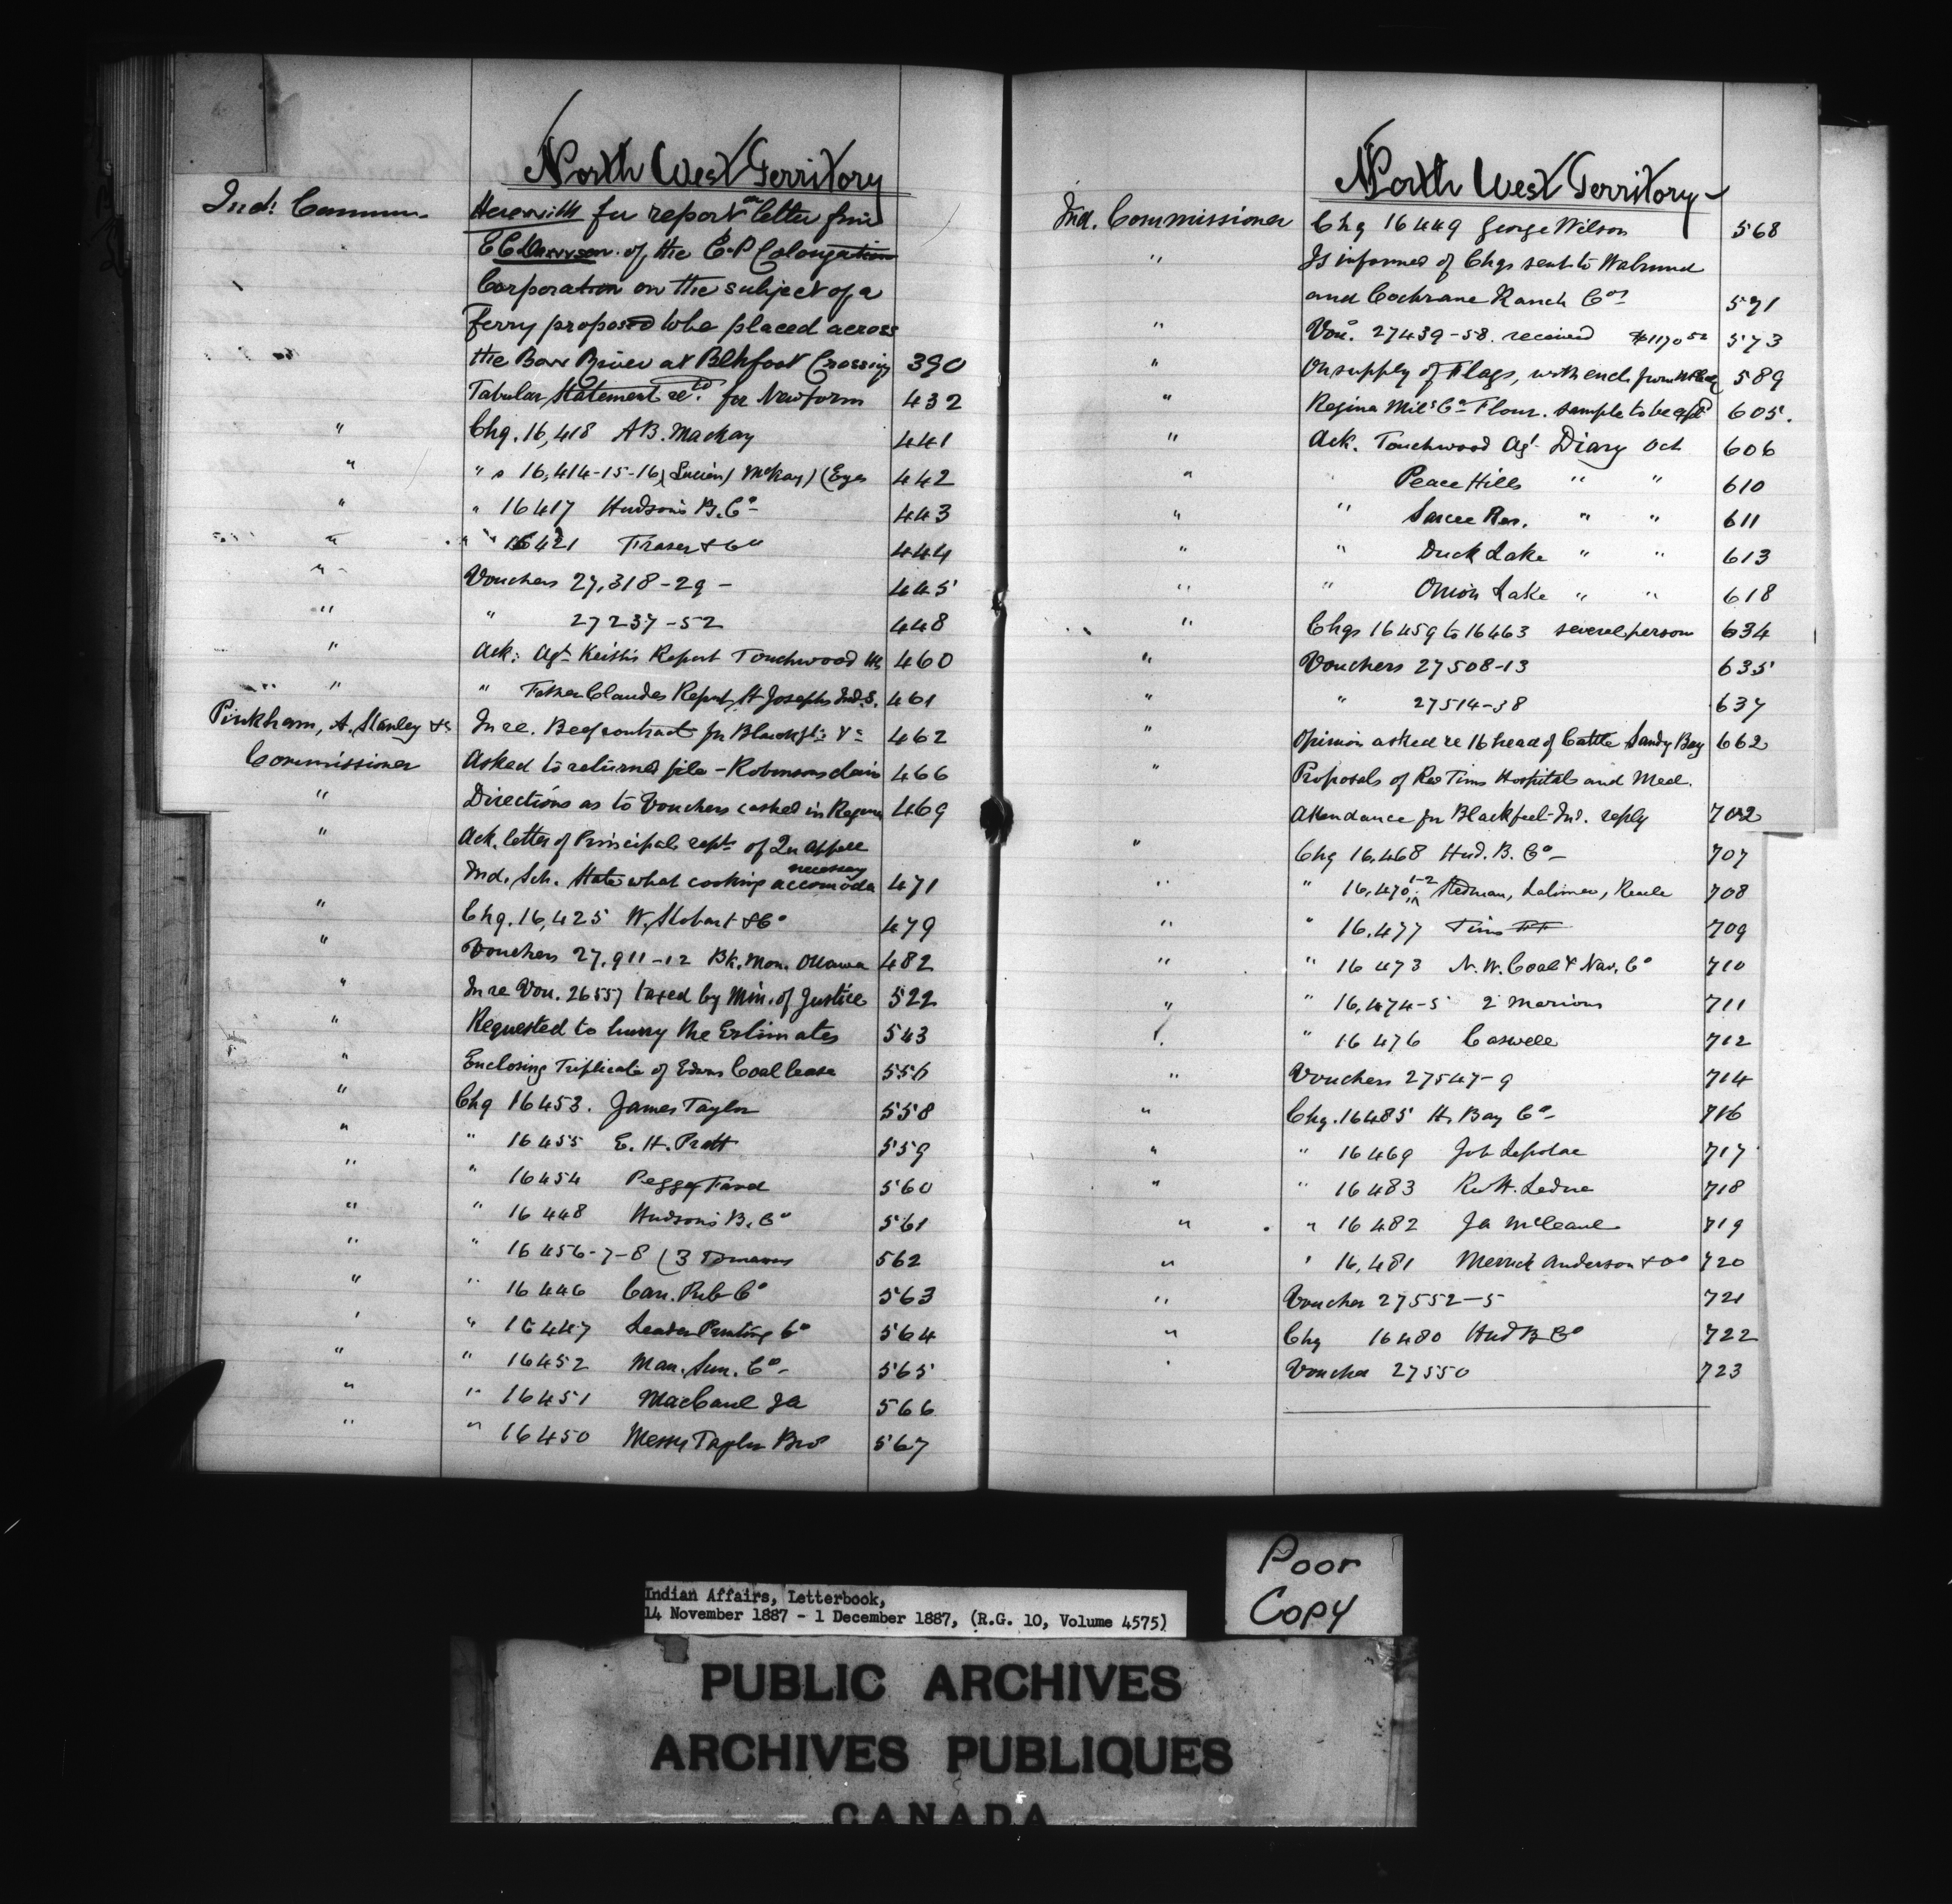 North West Territory
Ind. Commr. Herewith for report on letter from
of the C.P. Colonization
Corporation on the subject of a
ferry proposed to be placed across
the Bow River at Blkfoot Crossing 390
Tabular Statement retd. for New form 432
" Chq. 16,418 A B. Mackay 441
" " s 16,414-15-16 (Lucien) McKay) (Eyes 442
" " 16417 Hudson's B. Co 443
" " 16421 Fraser & Co 444
" Vouchers 27,318-29 - 445
" " 27237-52 448
" Ack: Agt. Keith's Report Touchwood Hs 460
" " Father Claudes Report, St Josephs Ind. S. 461
Pinkham, A. Stanley &c In re. Beef contract for Blackft: &c 462
Commissioner Asked to returned file - Robinsons claim 466
" Directions as to Vouchers cashed in Regina 469
" Ack. letter of Principals rept. of Qu Appelle
necessary
Ind. Sch. State what cooking accomoda 471
" Chq. 16,425 W. Stobart & Co 479
" Vouchers 27,911-12 Bk. Mon. Ottawa 482
" In re Vou. 26557 taxed by Min. of Justice 522
" Requested to hurry the Estimates 543
" Enclosing Triplicate of Coal lease 556
" Chq 16453. James Taylor 558
" " 16455 E. H. Pratt 559
" " 16454 Peggy 560
" " 16448 Hudson's B. Co 561
" " 16456-7-8 (3 562
" " 16446 Can. Rub Co 563
" " 16447 Leader Printing Co 564
" " 16452 Man. Sun. Co - 565
" " 16451 MacCaul Ja 566
" " 16450 Messrs Taylor Bros 567
North West Territory
Ind. Commissioner Chq 16449 George Wilson 568
" Is informed of Chqs sent to Walrond
and Cochrane Ranch Cos 571
" Vou. 27439-58. received $1170 52 573
" On supply of Flags, with encl. from 589
" Regina Mil. Co Flour. sample to be 605.
" Ack. Touchwood Agt Diary Oct 606
" " Peace Hills " " 610
" " Sarcee Res. " " 611
" " Duck Lake " " 613
" " Onion Lake " " 618
" Chqs 16459 to 16463 several person 634
" Vouchers 27508-13 635
" " 27514-38 637
" Opinion asked re 16 head of Cattle Sandy Bay 662
" Proposals of Rev Tims Hospital and Med.
Attendance for Blackfeet Ind. reply 702
" Chq 16,468 Hud. B. Co - 707
" " 16,470 1-2 Stedman, Latimer, 708
" " 16,477 Tims 709
" " 16 473 N. W. Coal & Nav. Co 710
" " 16,474-5 2 Marions 711
" " 16 476 Caswell 712
" Vouchers 27547-9 714
" Chq. 16485 H. Bay Co - 716
" " 16469 717
" " 16483 Rev H. Leduc 718
" " 16482 Ja McCaul 719
" " 16,481 Merrick Anderson & Co 720
" Voucher 27552-5 721
" Chq 16480 Hud B Co 722
" Voucher 27550 723
Poor
Copy
Indian Affairs, Letterbook,
14 November 1887 - 1 December 1887, (R.G. 10, Volume 4575)
PUBLIC ARCHIVES
ARCHIVES PUBLIQUES
CANADA